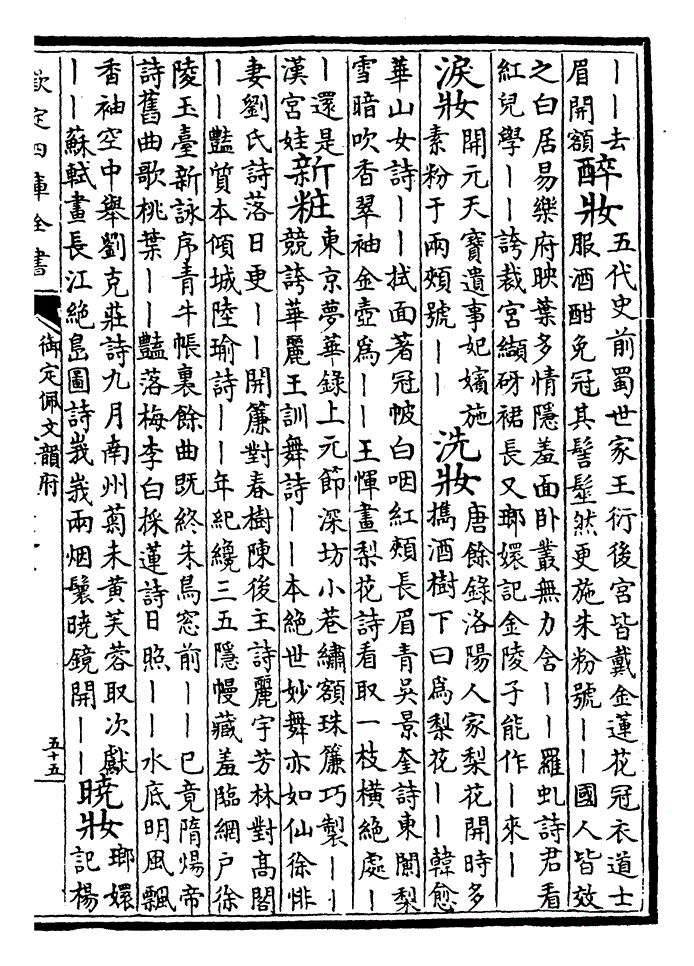 丨丨去
眉開額
醉妝
五代史前蜀世家王衍後宮皆戴金蓮花冠衣道士
服酒酣免冠其髻髽然更施朱粉號丨丨國人皆效
之白居易樂府映葉多情隱羞面卧叢無力含丨丨羅虬詩君看
紅兒學丨丨誇裁宮纈砑裙長又瑯嬛記金陵子能作丨來丨
淚妝
開元天寶遺事妃嬪施
素粉于兩頰號丨丨
洗妝
唐餘錄洛陽人家梨花開時多
攜酒樹下曰為梨花丨丨韓愈
華山女詩丨丨拭面著冠帔白咽紅頰長眉青吳景奎詩東闌梨
雪暗吹香翠袖金壺為丨丨王惲畫梨花詩看取一枝橫絶處丨
丨還是
漢宮娃
新粧
東京夢華錄上元節深坊小巷繡額珠簾巧製丨丨
競誇華麗王訓舞詩丨丨本絶世妙舞亦如仙徐悱
妻劉氏詩落日更丨丨開簾對春樹陳後主詩麗宇芳林對髙閣
丨丨豔質本傾城陸瑜詩丨丨年紀纔三五隱幔藏羞臨網户徐
陵玉臺新詠序青牛帳裏餘曲既終朱鳥窓前丨丨已竟隋煬帝
詩舊曲歌桃葉丨丨豔落梅李白採蓮詩日照丨丨水底明風飄
香袖空中舉劉克莊詩九月南州菊未黄芙蓉取次獻
丨丨蘇軾畫長江絶島圖詩峩峩兩烟鬟曉鏡開丨丨
曉妝
瑯嬛
記楊
欽定四庫全書
御定佩文韻府
五十五